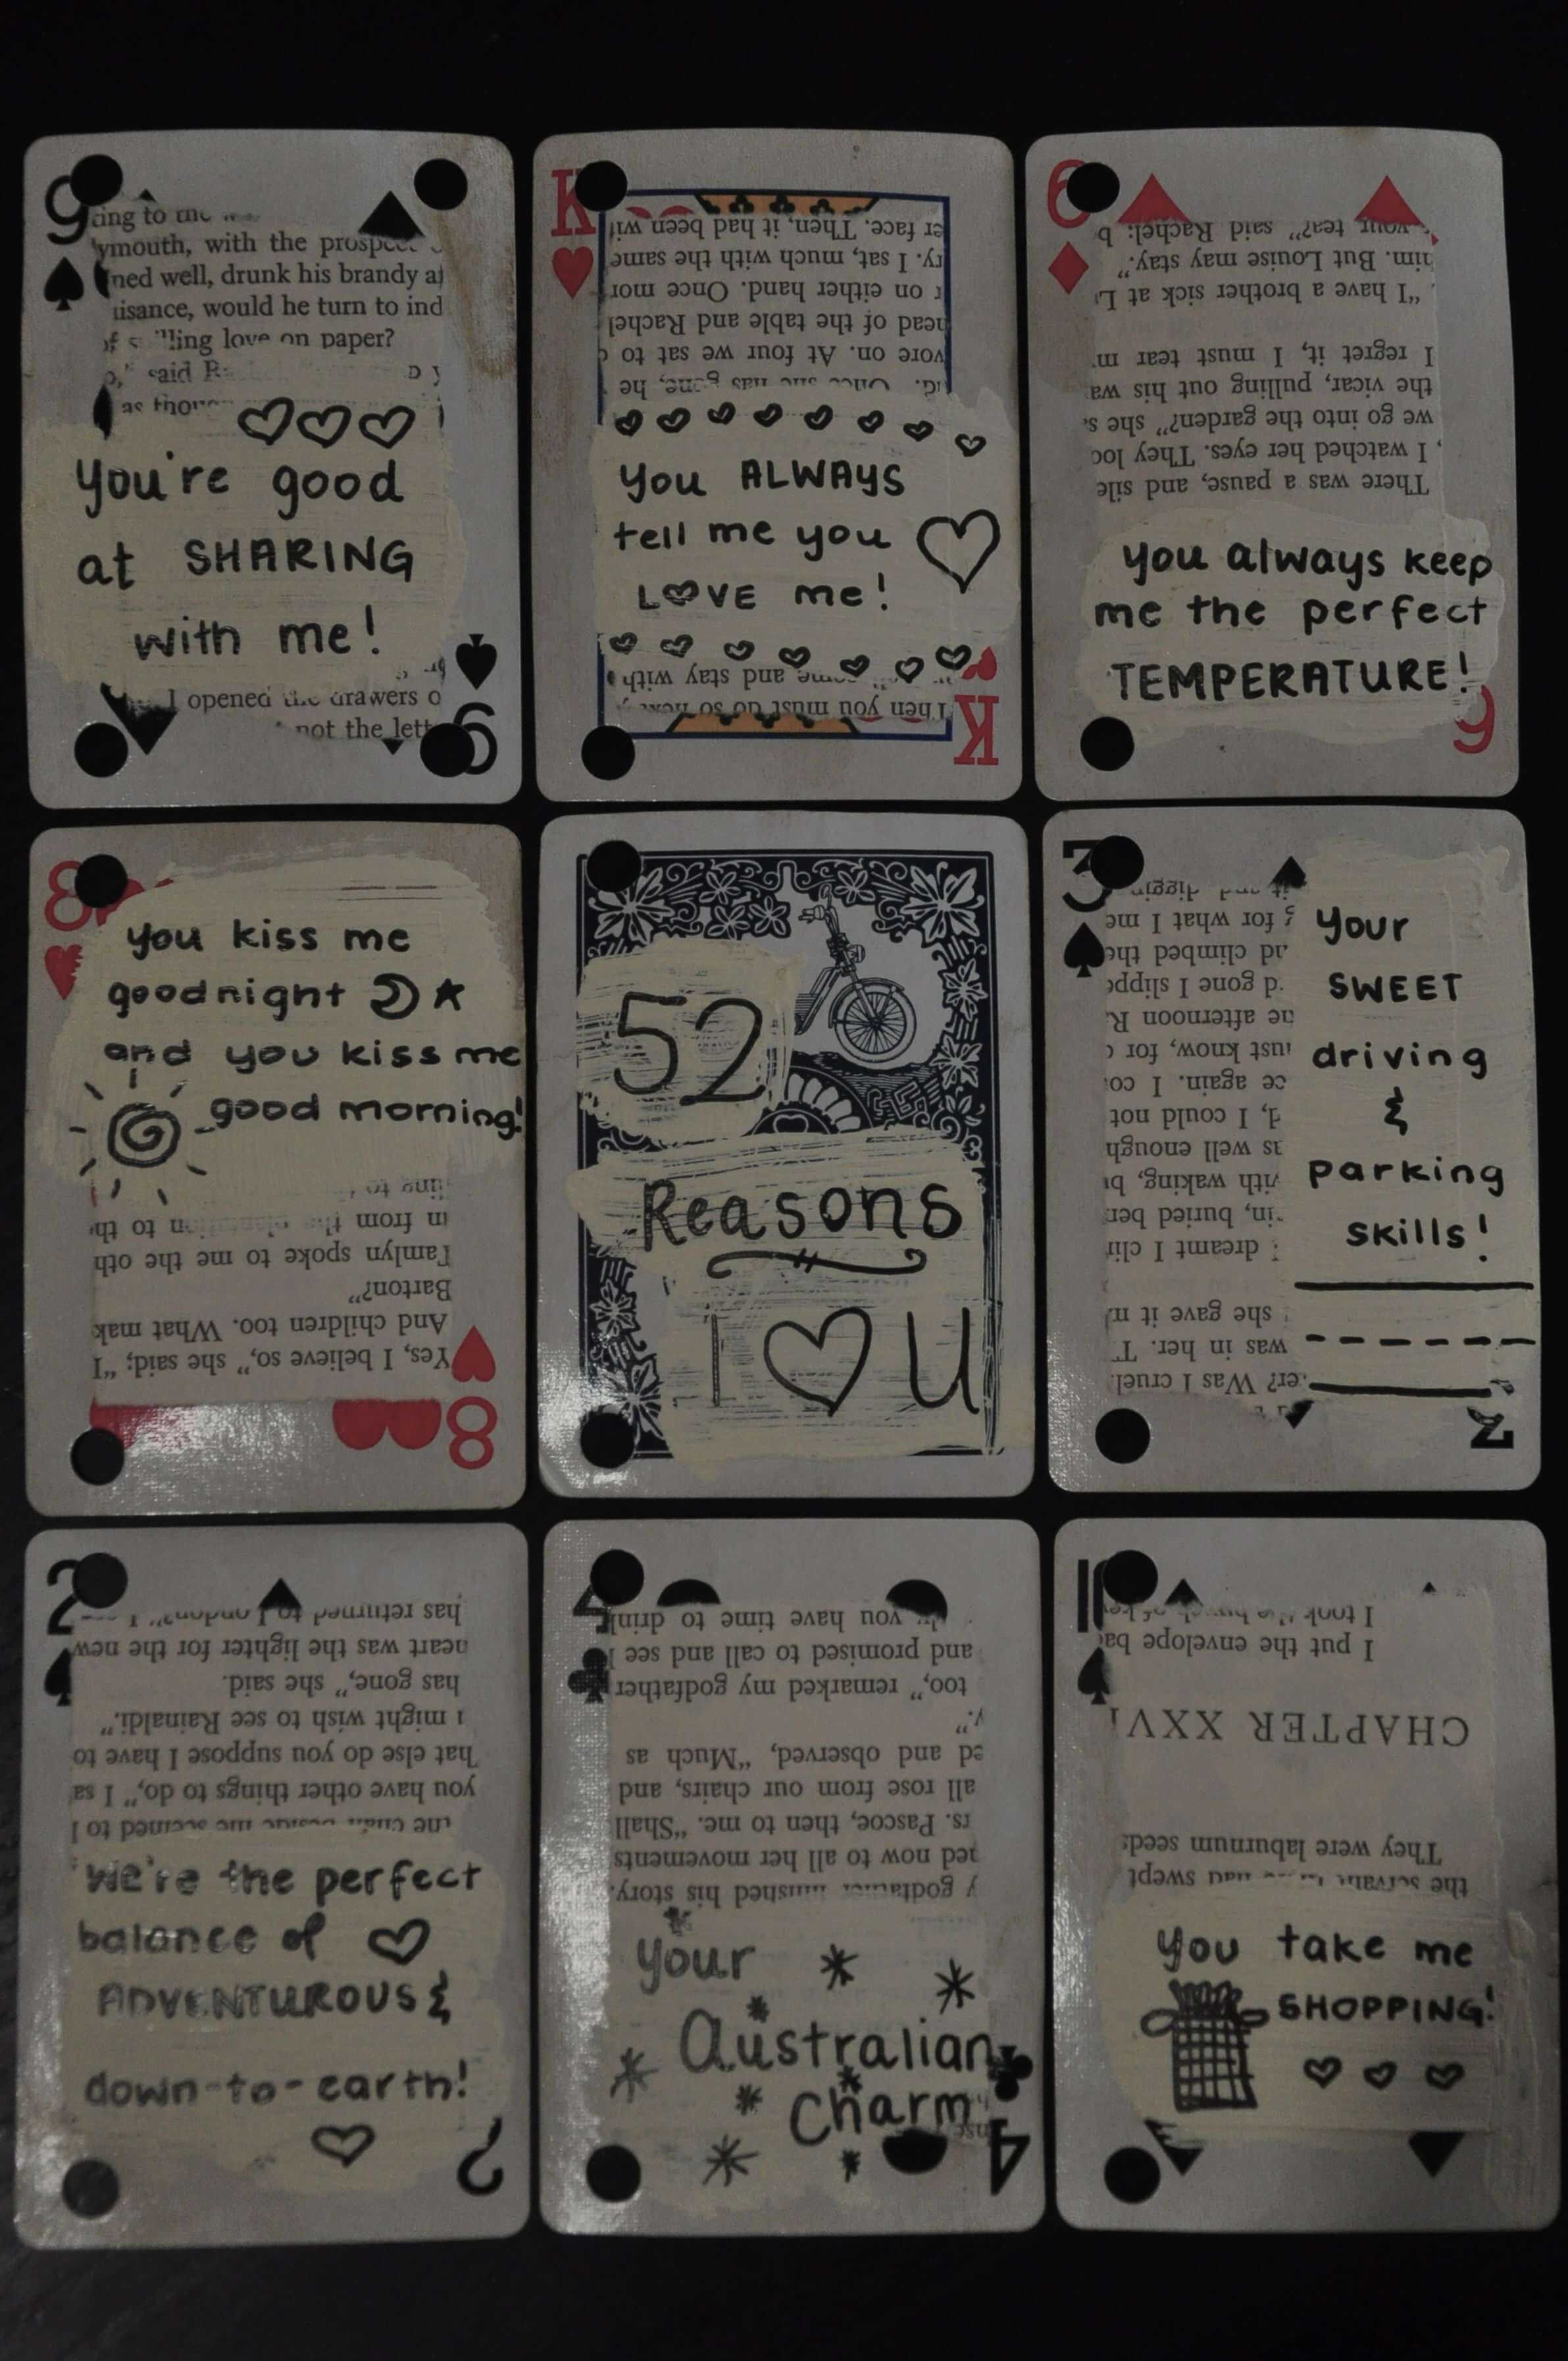 9
ymouth, with the
ned well, drunk his brandy
uisance, would he turn to
love on paper?
said
You're good
at SHARING
with me!
I opened the drawers
not the
9
K
er face. Then, it had been
I sat, much with the same
on either hand. Once
head of the table and Rachel
on. At four we sat to
he
You ALWAYS
tell me you
LOVE me!
and stay with
Then you must do so
K
6
your tea?" said Rachel:
him. But Louise may stay."
"I have a brother sick at
I regret it, I must tear
the vicar, pulling out his
we go into the garden?" she
I watched her eyes. They
There was a pause, and
you always keep
me the perfect
TEMPERATURE!
6
8
you kiss me
goodnight
and you kiss me
good morning!
in from the plantation to
Tamlyn spoke to me the
Barton?"
And children too. What
Yes, I believe so," she said; "I
8
52
Reasons
I ♡ U
3
for what I
climbed
gone I
afternoon
know, for
again. I
I could not
as well enough
with waking,
in, buried
dreamt I
she gave it
was in her.
Was I cruel
your
SWEET
driving
&
parking
skills!
3
2
has returned to London?"
heart was the lighter for the new
has gone," she said.
I might wish to see Rainaldi."
What else do you suppose I have to
you have other things to do," I
the chair beside me seemed to
We're the perfect
balance of ♡
ADVENTUROUS &
down-to-earth!
2
4
you have time to drink
and promised to call and see
too," remarked my godfather
and observed, "Much as
all rose from our chairs, and
Pascoe, then to me. "Shall
now to all her movements
godfather finished his story.
your
Australian
Charm
4
10
I took the
I put the envelope
CHAPTER
They were laburnum seeds
the servant had swept
You take me
SHOPPING!